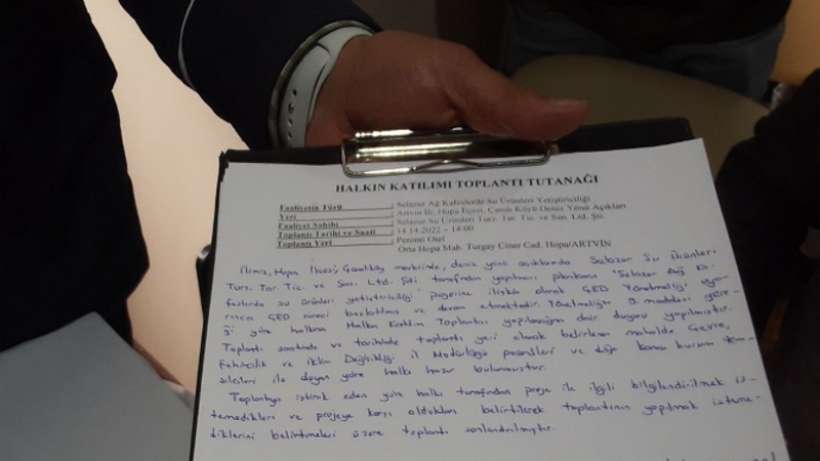 HALKIN KATILIMI TOPLANTI TUTANAĞI
Faaliyetin Türü : Selazur Ağ Kafeslerde Su Ürünleri Yetiştiriciliği
Yeri : Artvin İli, Hopa İlçesi, Köyü Deniz Yönü Açıkları
Faaliyet Sahibi : Selazur Su Ürünleri Turz. Tar. Tic. ve San. Ltd. Şti.
Toplantı Tarihi ve Saati : 14.14.2022 – 14:00
Toplantı Yeri : Peronti Otel
Orta Hopa Mah. Turgay Ciner Cad. Hopa/ARTVİN
İlimiz, Hopa İlçesi, mevkiinde, deniz yönü açıklarında Selazur Su Ürünleri
Turz. Tar. Tic. ve San. Ltd. Şti tarafından yapılması planlanan "Selazur Ağ Ka-
feslerde su ürünleri yetiştiriciliği" projesine ilişkin olarak ÇED Yönetmeliği uya-
rınca ÇED süreci başlatılmış ve devam etmektedir. Yönetmeliğin 9. maddesi gere-
ği yöre halkına Halkın Katılım Toplantısı yapılacağına dair duyuru yapılmıştır.
Toplantı saatinde ve tarihinde toplantı yeri olarak belirlenen mahalde Çevre,
Şehircilik ve İklim Değişikliği İl Müdürlüğü personelleri ve diğer kamu kurum tem-
silcileri ile duyan yöre halkı hazır bulunmuştur.
Toplantıya iştirak eden yöre halkı tarafından proje ile ilgili bilgilendirilmek is-
temedikleri ve projeye karşı oldukları belirtilerek toplantının yapılmak isteme-
diklerini belirtmeleri üzere toplantı sonlandırılmıştır.